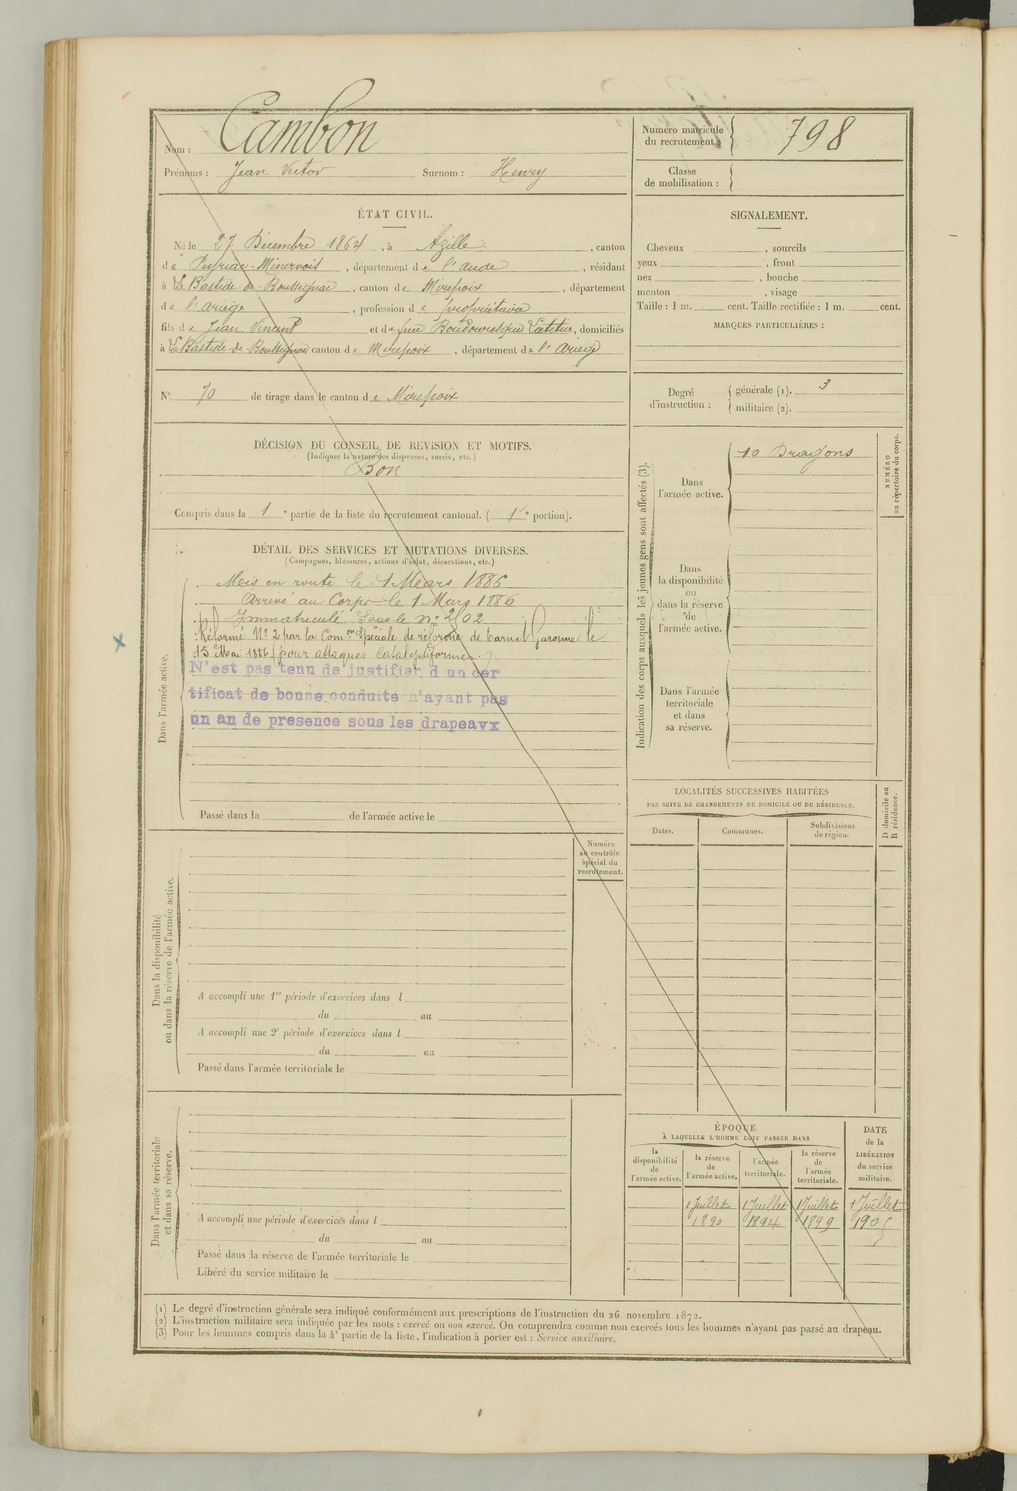 Nom : Cambon
Prénoms : Jean Victor Surnom : Henry
Numéro matricule du recrutement : 798
Classe de mobilisation :
ÉTAT CIVIL.
Né le 27 Décembre 1864, à Azille, canton
de Peyriac-Minervois, département de l'aude, résidant
à La Bastide-de-Bousignac, canton de Mirepoix, département
de l'ariège, profession de propriétaire
fils de Jean Vincent et de feue Laetitia, domiciliés
à La Bastide-de-Bousignac canton de Mirepoix, département de l'ariège
N° 70 de tirage dans le canton de Mirepoix
DÉCISION DU CONSEIL DE REVISION ET MOTIFS.
(Indiquer la nature des dispenses, sursis, etc.)
Bon
Compris dans la 1e partie de la liste du recrutement cantonal. (1e portion).
DÉTAIL DES SERVICES ET MUTATIONS DIVERSES.
(Campagnes, blessures, actions d'éclat, décorations, etc.)
Dans l'armée active.
Mis en route le 1 Mars 1886
Arrivé au Corps le 1 Mars 1886
Immatriculé Sous le n° 2102
Réformé N° 2 par la Com.on Spéciale de réforme de Tarn et Garonne le
15 Mai 1886 (pour attaques Cataleptiformes.)
N'est pas tenu de justifier d un cer
tificat de bonne conduite n'ayant pas
un an de presence sous les drapeavx
Passé dans la de l'armée active le
Dans la disponibilité
ou dans la réserve de l'armée active.
Numéro
au contrôle
spécial du
recrutement.
A accompli une 1re période d'exercices dans l
du au
A accompli une 2e période d'exercices dans l
du au
Passé dans l'armée territoriale le
Dans l'armée territoriale
et dans sa réserve.
A accompli une période d'exercices dans l
du au
Passé dans la réserve de l'armée territoriale le
Libéré du service militaire le
SIGNALEMENT.
Cheveux , sourcils
yeux , front
nez , bouche
menton , visage
Taille : 1 m. cent. Taille rectifiée : 1 m. cent.
MARQUES PARTICULIÈRES :
Degré d'instruction :
générale (1). 3
militaire (2).
Indication des corps auxquels les jeunes gens sont affectés (3).
NUMÉRO
au répertoire du corps.
Dans
l'armée active.
10 Dragons
Dans
la disponibilité
ou
dans la réserve
de
l'armée active.
Dans l'armée
territoriale
et dans
sa réserve.
LOCALITÉS SUCCESSIVES HABITÉES
PAR SUITE DE CHANGEMENTS DE DOMICILE OU DE RÉSIDENCE.
D domicile ou
R résidence.
Dates. Communes. Subdivisions de région.
ÉPOQUE
À LAQUELLE L'HOMME DOIT PASSER DANS
DATE de la LIBÉRATION du service militaire.
la disponibilité de l'armée active.
la réserve de l'armée active.
l'armée territoriale.
la réserve de l'armée territoriale.
1 Juillet 1 Juillet 1 Juillet 1 Juillet
1890 1894 1899 1905
(1) Le degré d'instruction générale sera indiqué conformément aux prescriptions de l'instruction du 26 novembre 1872.
(2) L'instruction militaire sera indiquée par les mots : exercé ou non exercé. On comprendra comme non exercés tous les hommes n'ayant pas passé au drapeau.
(3) Pour les hommes compris dans la 4e partie de la liste, l'indication à porter est : Service auxiliaire.